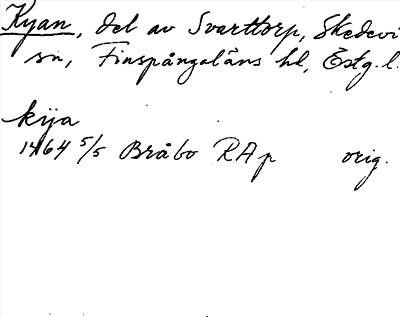 Kyan, del av Svarttorp, Skedevi
sn, Finspångaläns hd, Östg.l.
kija
1464 5/5 Bråbo RAp orig.